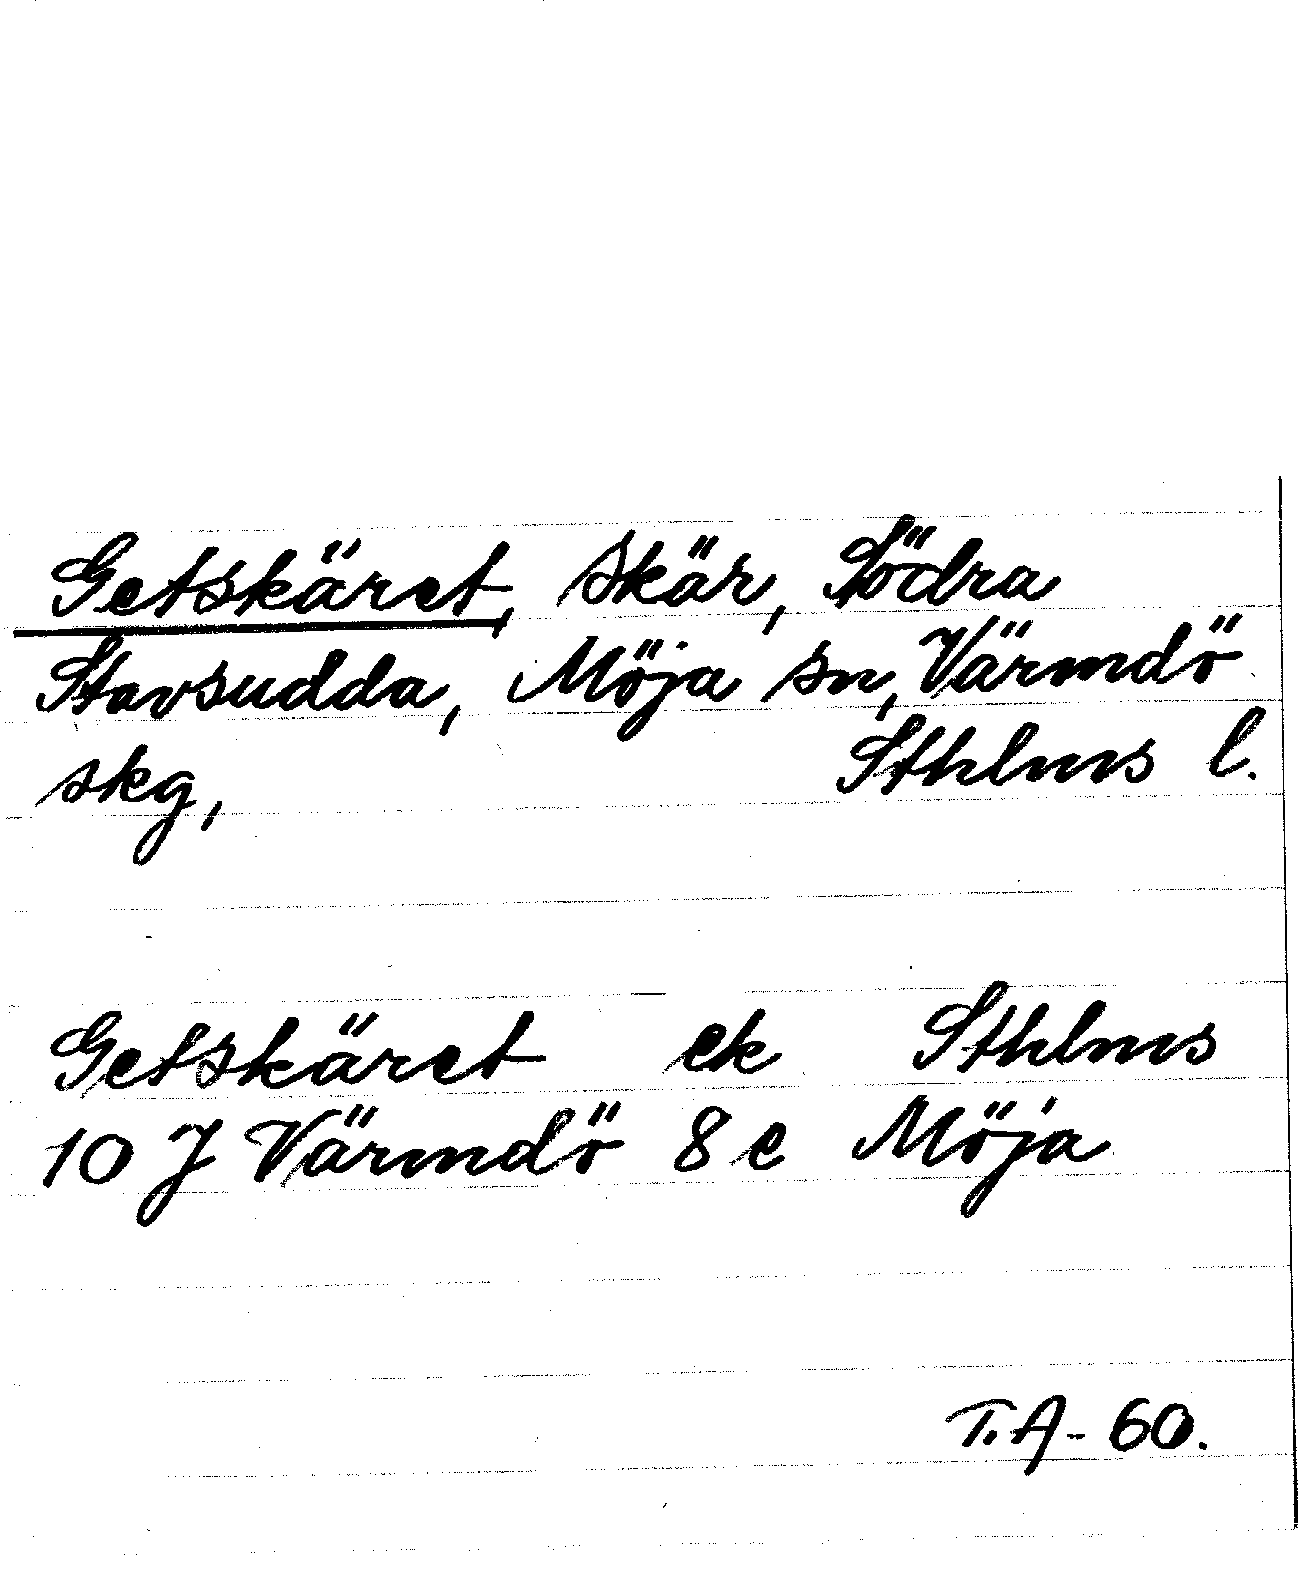 Getskäret, skär, Södra
Stavsudda, Möja sn, Värmdö
skg, Sthlms l.
Getskäret ek Sthlms
10 J Värmdö 8 e Möja
T.A-60.